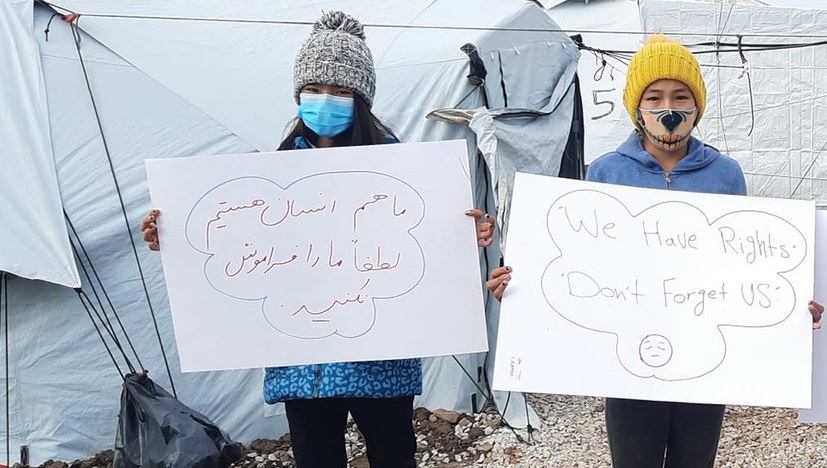 ما هم انسان هستیم
لطفاً ما را فراموش
نکنید.
We Have Rights.
Don't Forget US.
5